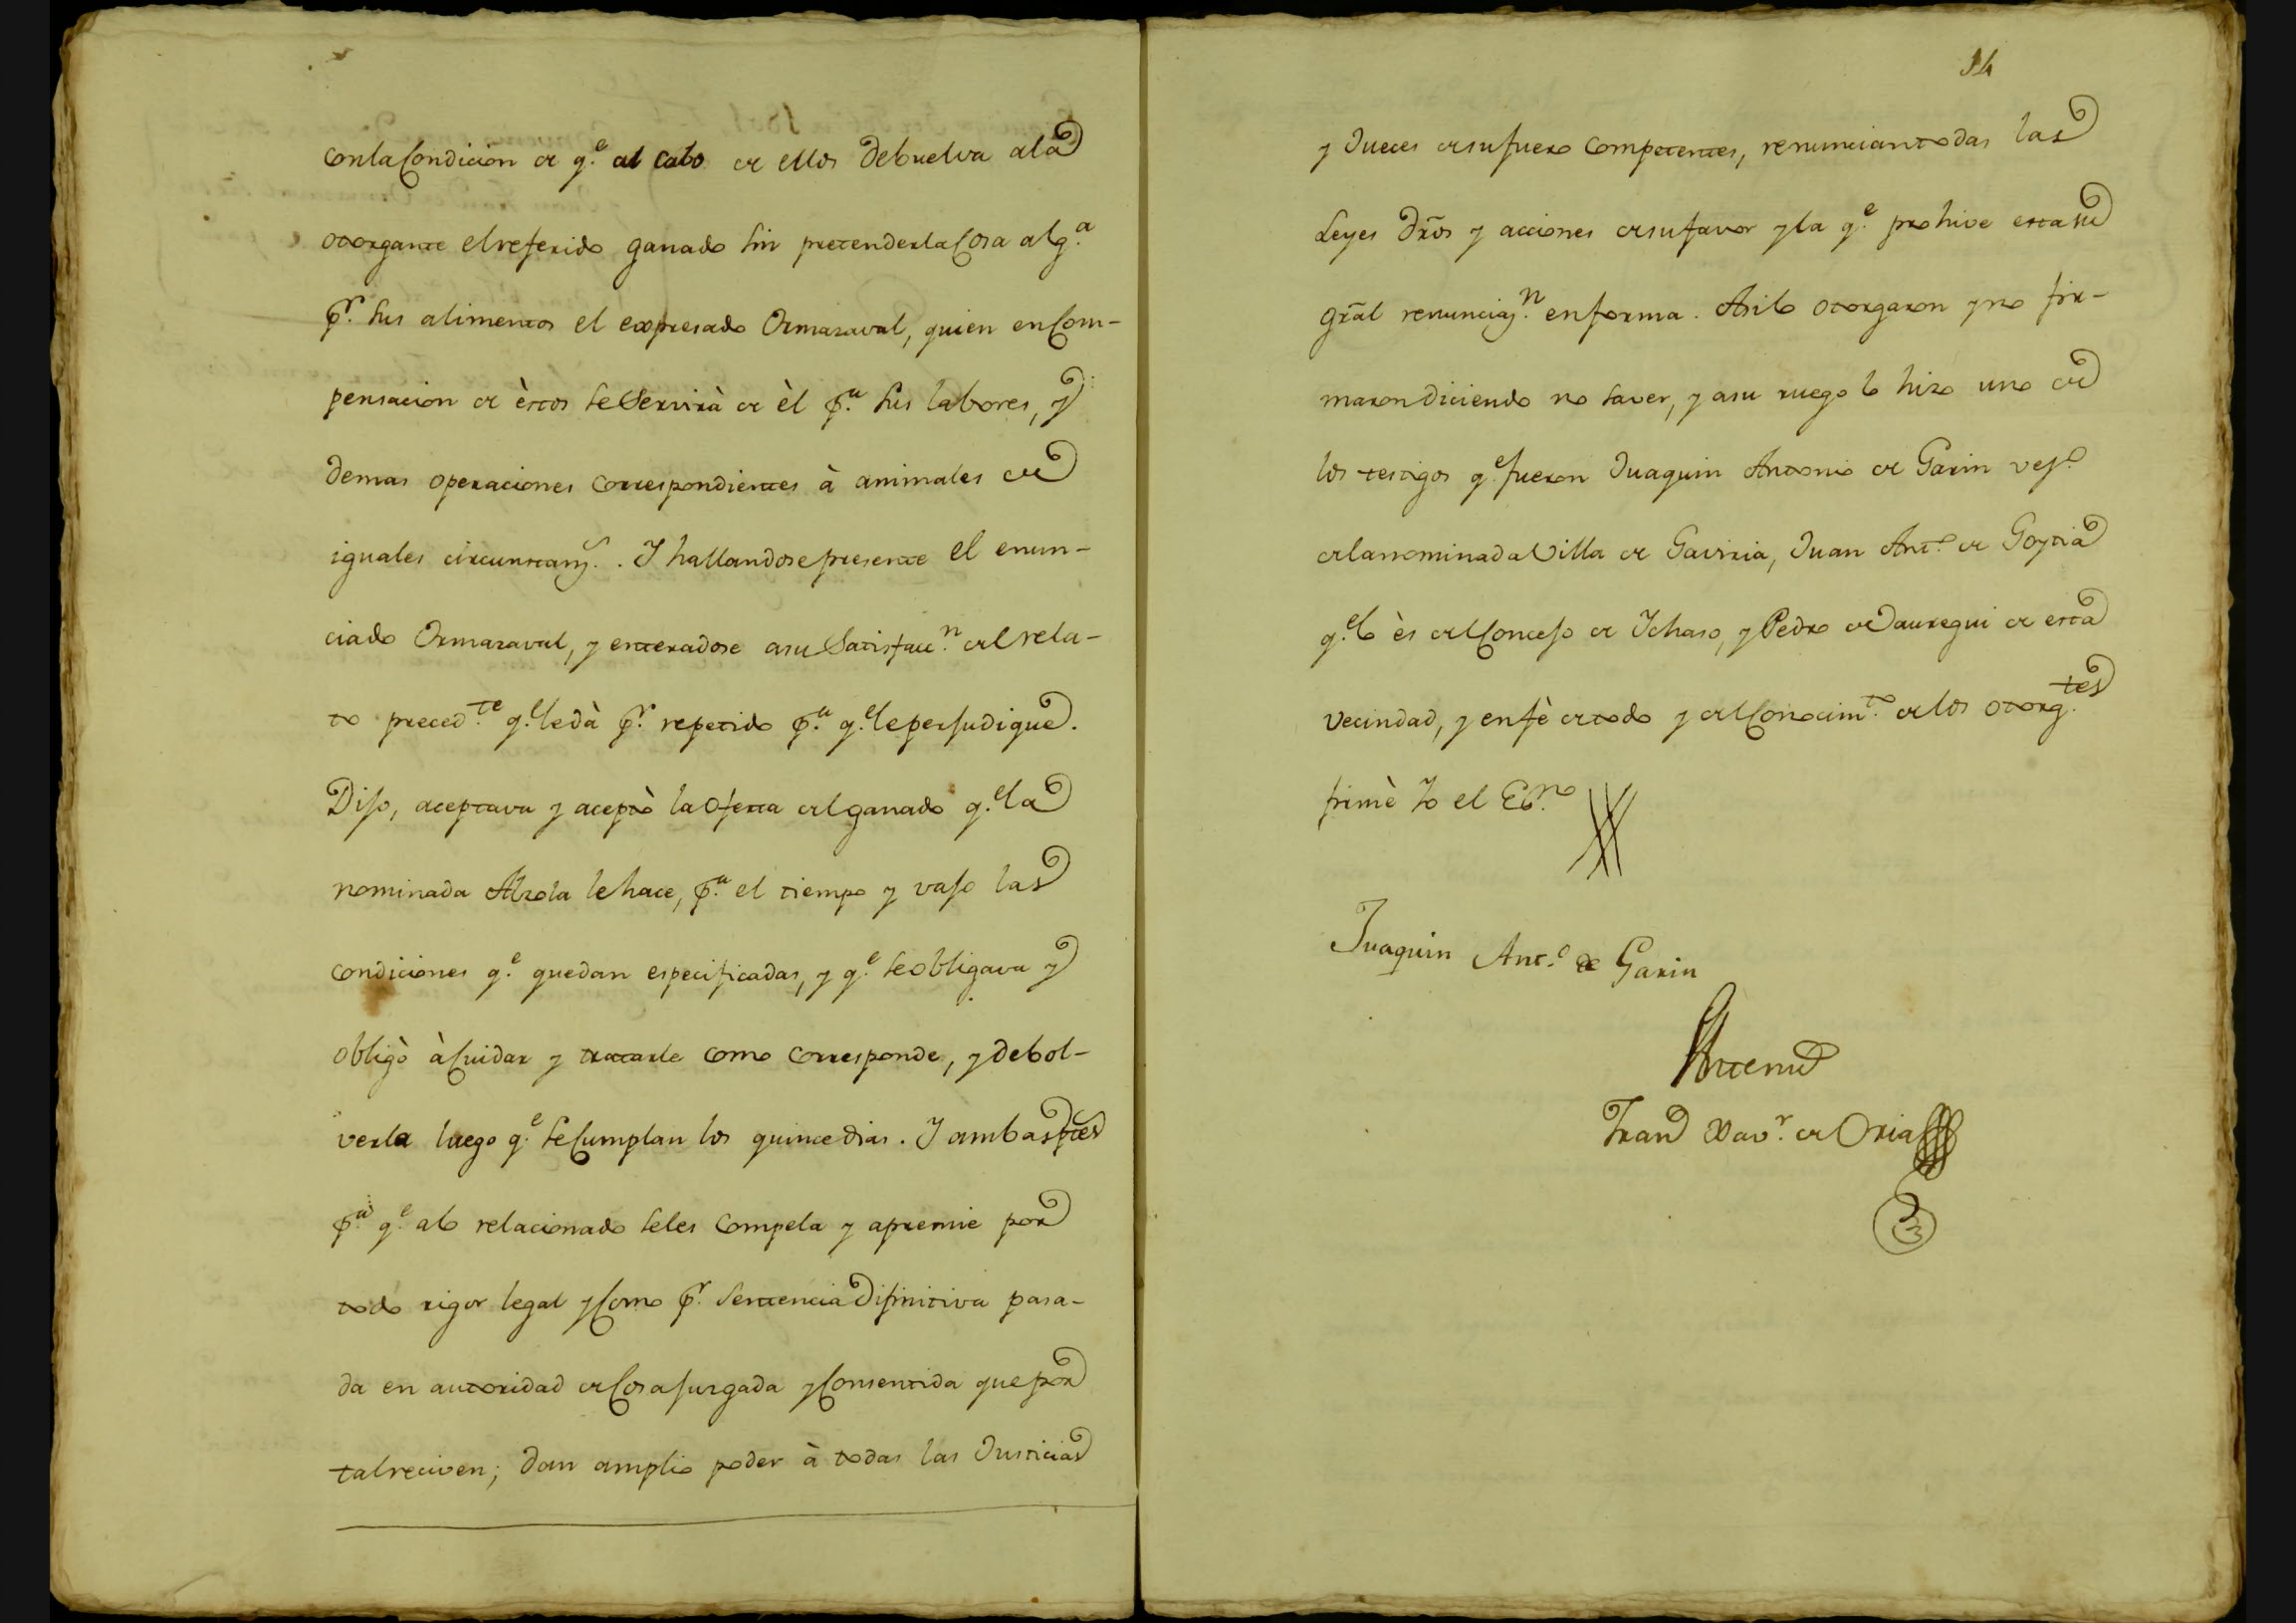 con la Condicion de q.e al cabo de ellos debuelva a la
otorgante el referido ganado sin pretenderla Cosa alg.a
p.r sus alimentos el expresado Ormazaval, quien en Com-
pensacion de èstos se Servirà de èl p.a sus labores, y
demas operaciones correspondientes à animales de
iguales circunstan.s. Y hallandose presente el enun-
ciado Ormazaval, y enteradose a su Satisfacc.n del rela-
to preced.te q.e le dà p.r repetido p.a q.e le perjudique.
Dijo, aceptava y aceptò la oferta del ganado q.e la
nominada Alzola le hace, p.a el tiempo y vajo las
condiciones q.e quedan especificadas, y q.e se obligava y
obligò à Cuidar y tratarle como corresponde, y debol-
verla luego q.e se Cumplan los quince dias. Y ambas ptes
p.a q.e a lo relacionado se les Compela y apremie por
todo rigor legal y Como p.r Sentencia Difinitiva pasa-
da en autoridad de Cosa juzgada y Consentida que por
tal reciven; dan amplio poder à todas las Justicias
34
y Jueces de su fuero Competentes, renuncian todas las
Leyes dr̃os y acciones de su favor y la q.e prohive esta su
gr̃al renunciaz.n en forma. Asi lo otorgaron y no fir-
maron diciendo no saver, y a su ruego lo hizo uno de
los testigos q.e fueron Juaquin Antonio de Garin vez.o
de la nominada Villa de Gaviria, Juan Ant.o de Goytia
q.e lo ès del Concejo de Ichaso, y Pedro de Jauregui de esta
Vecindad, y en fè de todo y del Conocim.to de los otorg.tes
firmè Yo el Es.no
Juaquin Ant.o de Garin
Ante mi
Fran.co Xav.r de Oria